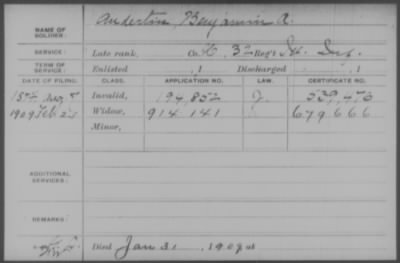 NAME OF SOLDIER: Anderton, Benjamin A.
SERVICE: Late rank, Co. H, 32 Reg't Inf.
TERM OF SERVICE: Enlisted , 1 Discharged , 1
DATE OF FILING. CLASS. APPLICATION NO. LAW. CERTIFICATE NO.
Invalid, 194,852 539,470
1909 Feb 23 Widow, 914 141 679 666
Minor,
ADDITIONAL SERVICES:
REMARKS:
Died Jan 31, 1909 at